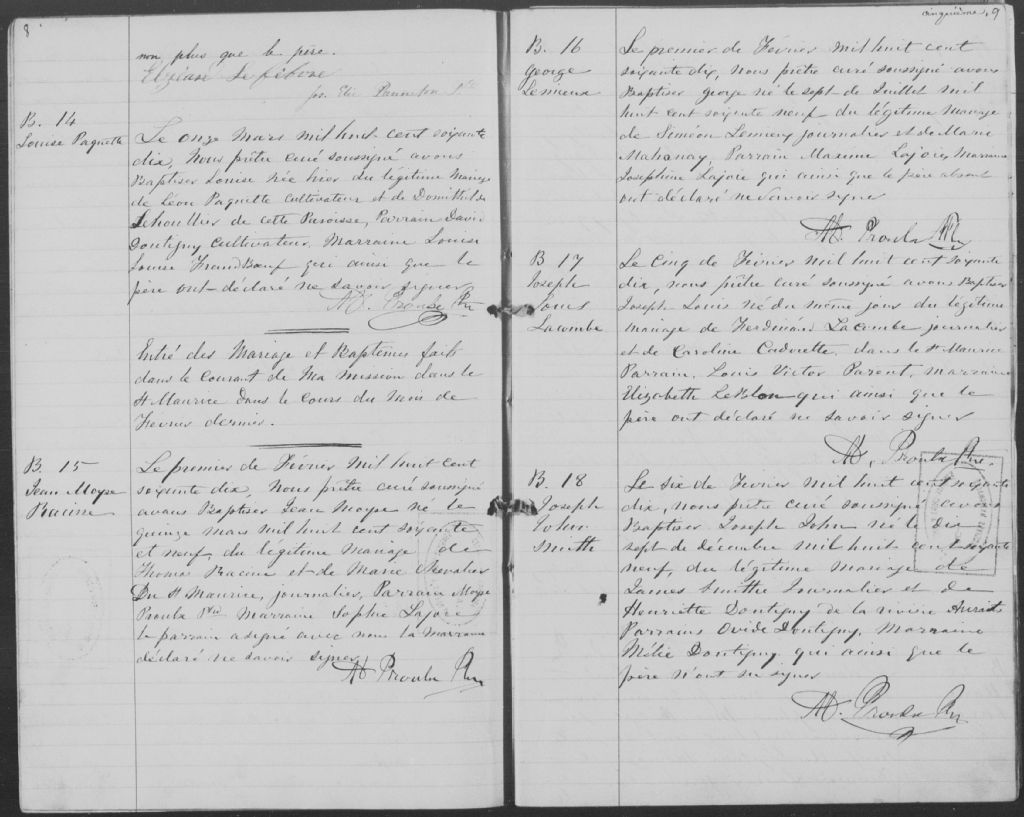 8
non plus que le père.
Elzéar Lefebvre
B. 14
Louise Paquette
Le onze Mars mil huit cent soixante
dix, Nous prêtre curé soussigné avons
Baptiser Louise née hier du légitime Mariage
de Léon Paquette Cultivateur et de Domithilde
Lehoullier de cette Paroisse, Parrain David
Dontigny Cultivateur, Marraine Louise
Louise Grand Boeuf qui ainsi que le
père ont déclaré ne savoir signer
M. Proulx Ptre
Entré des Mariage et Baptêmes faits
dans le Courant de Ma Mission dans le
St Maurice Dans le Cours du Mois de
Février dernier.
B. 15
Jean Moyse
Racine
Le premier de Février Mil huit cent
soixante dix, Nous prêtre curé soussigné
avons Baptiser Jean Moyse né le
quinze mars mil huit cent soixante
et neuf, du légitime Mariage de
Thomas Racine et de Marie Chevalier
Du St Maurice, journalier, Parrain Moyse
Proulx Ptre Marraine Sophie Lajoie
le parrain a signé avec nous la Marraine
déclaré ne savoir signer
M Proulx Ptre
cinquième, 9
B. 16
George
Lemieux
Le premier de Février Mil huit cent
soixante dix, Nous prêtre curé soussigné avons
Baptiser George né le sept de Juillet mil
huit cent soixante neuf du légitime Mariage
de Siméon Lemieux journalier et de Marie
Mahanay, Parrain Maxime Lajoie, Marraine
Josephine Lajoie qui ainsi que le père absent
ont déclaré ne savoir signer
M. Proulx Ptre
B 17
Joseph
Louis
Lacombe
Le Cinq de Février Mil huit cent soixante
dix, nous prêtre curé soussigné avons Baptiser
Joseph Louis né du même jour du légitime
mariage de Ferdinand Lacombe journalier
et de Caroline Cadorette, dans le St Maurice
Parrain, Louis Victor Parent, Marraine
Elizabette LeBlon qui ainsi que le
père ont déclaré ne savoir signer
M. Proulx Ptre.
B. 18
Joseph
John
Smith
Le six de Février Mil huit cent soixante
dix, nous prêtre curé soussigné avons
Baptiser Joseph John né le dix
sept de décembre mil huit cent soixante
neuf, du légitime mariage de
James Smithe Journalier et de
Henriette Dontigny de la rivière
Parrains Ovide Dontigny, Marraine
Mélie Dontigny qui ainsi que le
père n'ont su signer
M. Proulx Ptre